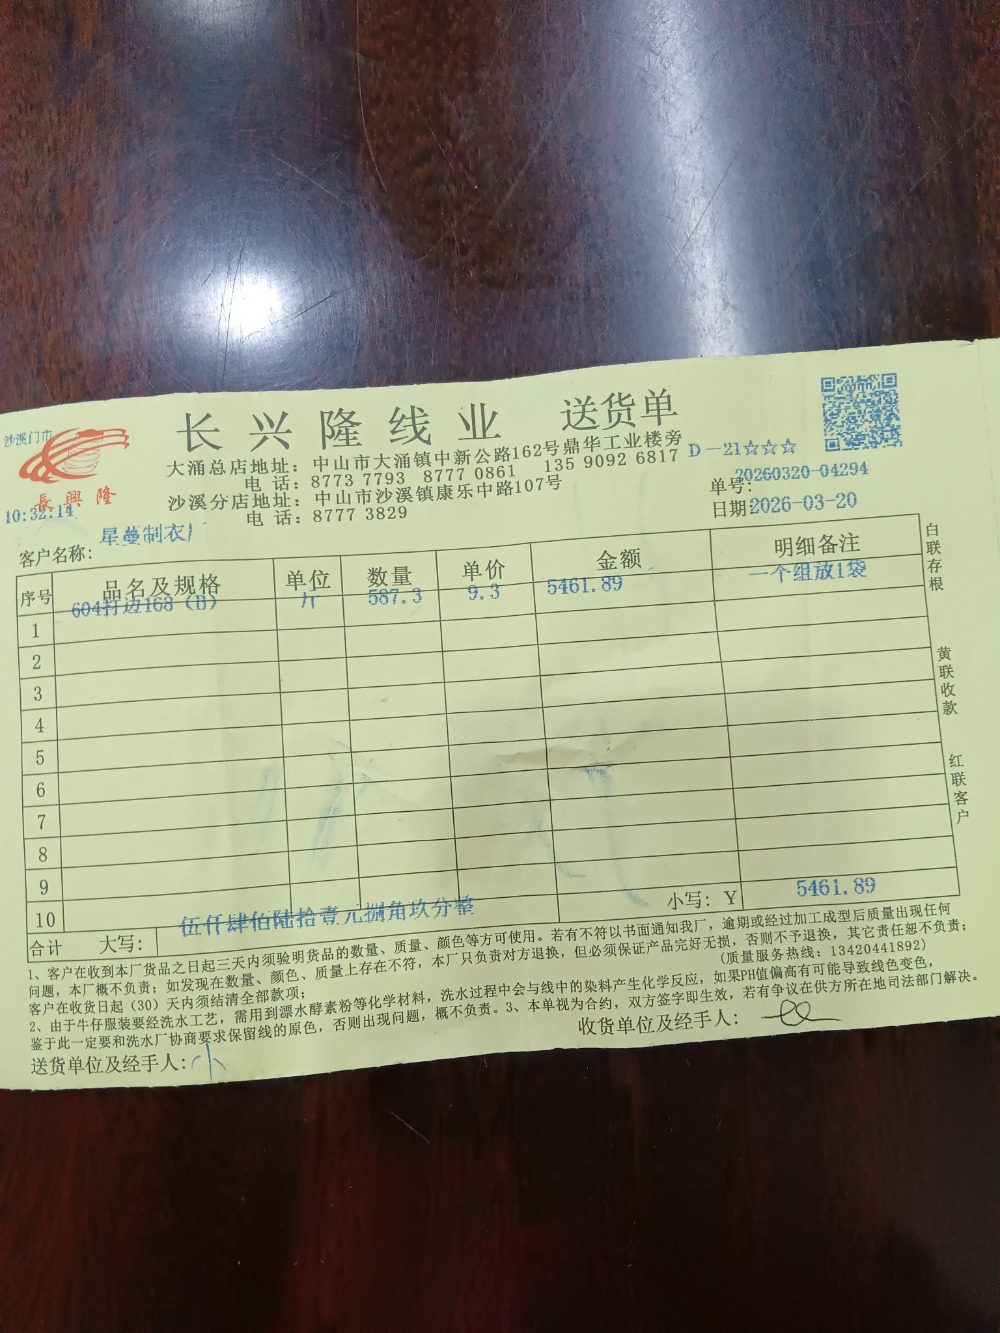 沙溪门市
長興隆
10:32:14
长兴隆线业 送货单
大涌总店地址：中山市大涌镇中新公路162号鼎华工业楼旁
电 话：8773 7793 8777 0861 135 9092 6817
沙溪分店地址：中山市沙溪镇康乐中路107号
电 话：8777 3829
D－21☆☆☆
单号：20260320-04294
日期：2026-03-20
客户名称：星蔓制衣厂
序号 品名及规格 单位 数量 单价 金额 明细备注
604打边168（B） 斤 587.3 9.3 5461.89 一个组放1袋
1
2
3
4
5
6
7
8
9
10
合计 大写：伍仟肆佰陆拾壹元捌角玖分整 小写：￥ 5461.89
白联存根
黄联收款
红联客户
1、客户在收到本厂货品之日起三天内须验明货品的数量、质量、颜色等方可使用。若有不符以书面通知我厂，逾期或经过加工成型后质量出现任何
问题，本厂概不负责；如发现在数量、颜色、质量上存在不符，本厂只负责对方退换，但必须保证产品完好无损，否则不予退换，其它责任恕不负责；
客户在收货日起（30）天内须结清全部款项；
（质量服务热线：13420441892）
2、由于牛仔服装要经洗水工艺，需用到漂水酵素粉等化学材料，洗水过程中会与线中的染料产生化学反应，如果PH值偏高有可能导致线色变色，
鉴于此一定要和洗水厂协商要求保留线的原色，否则出现问题，概不负责。3、本单视为合约，双方签字即生效，若有争议在供方所在地司法部门解决。
送货单位及经手人：小
收货单位及经手人：